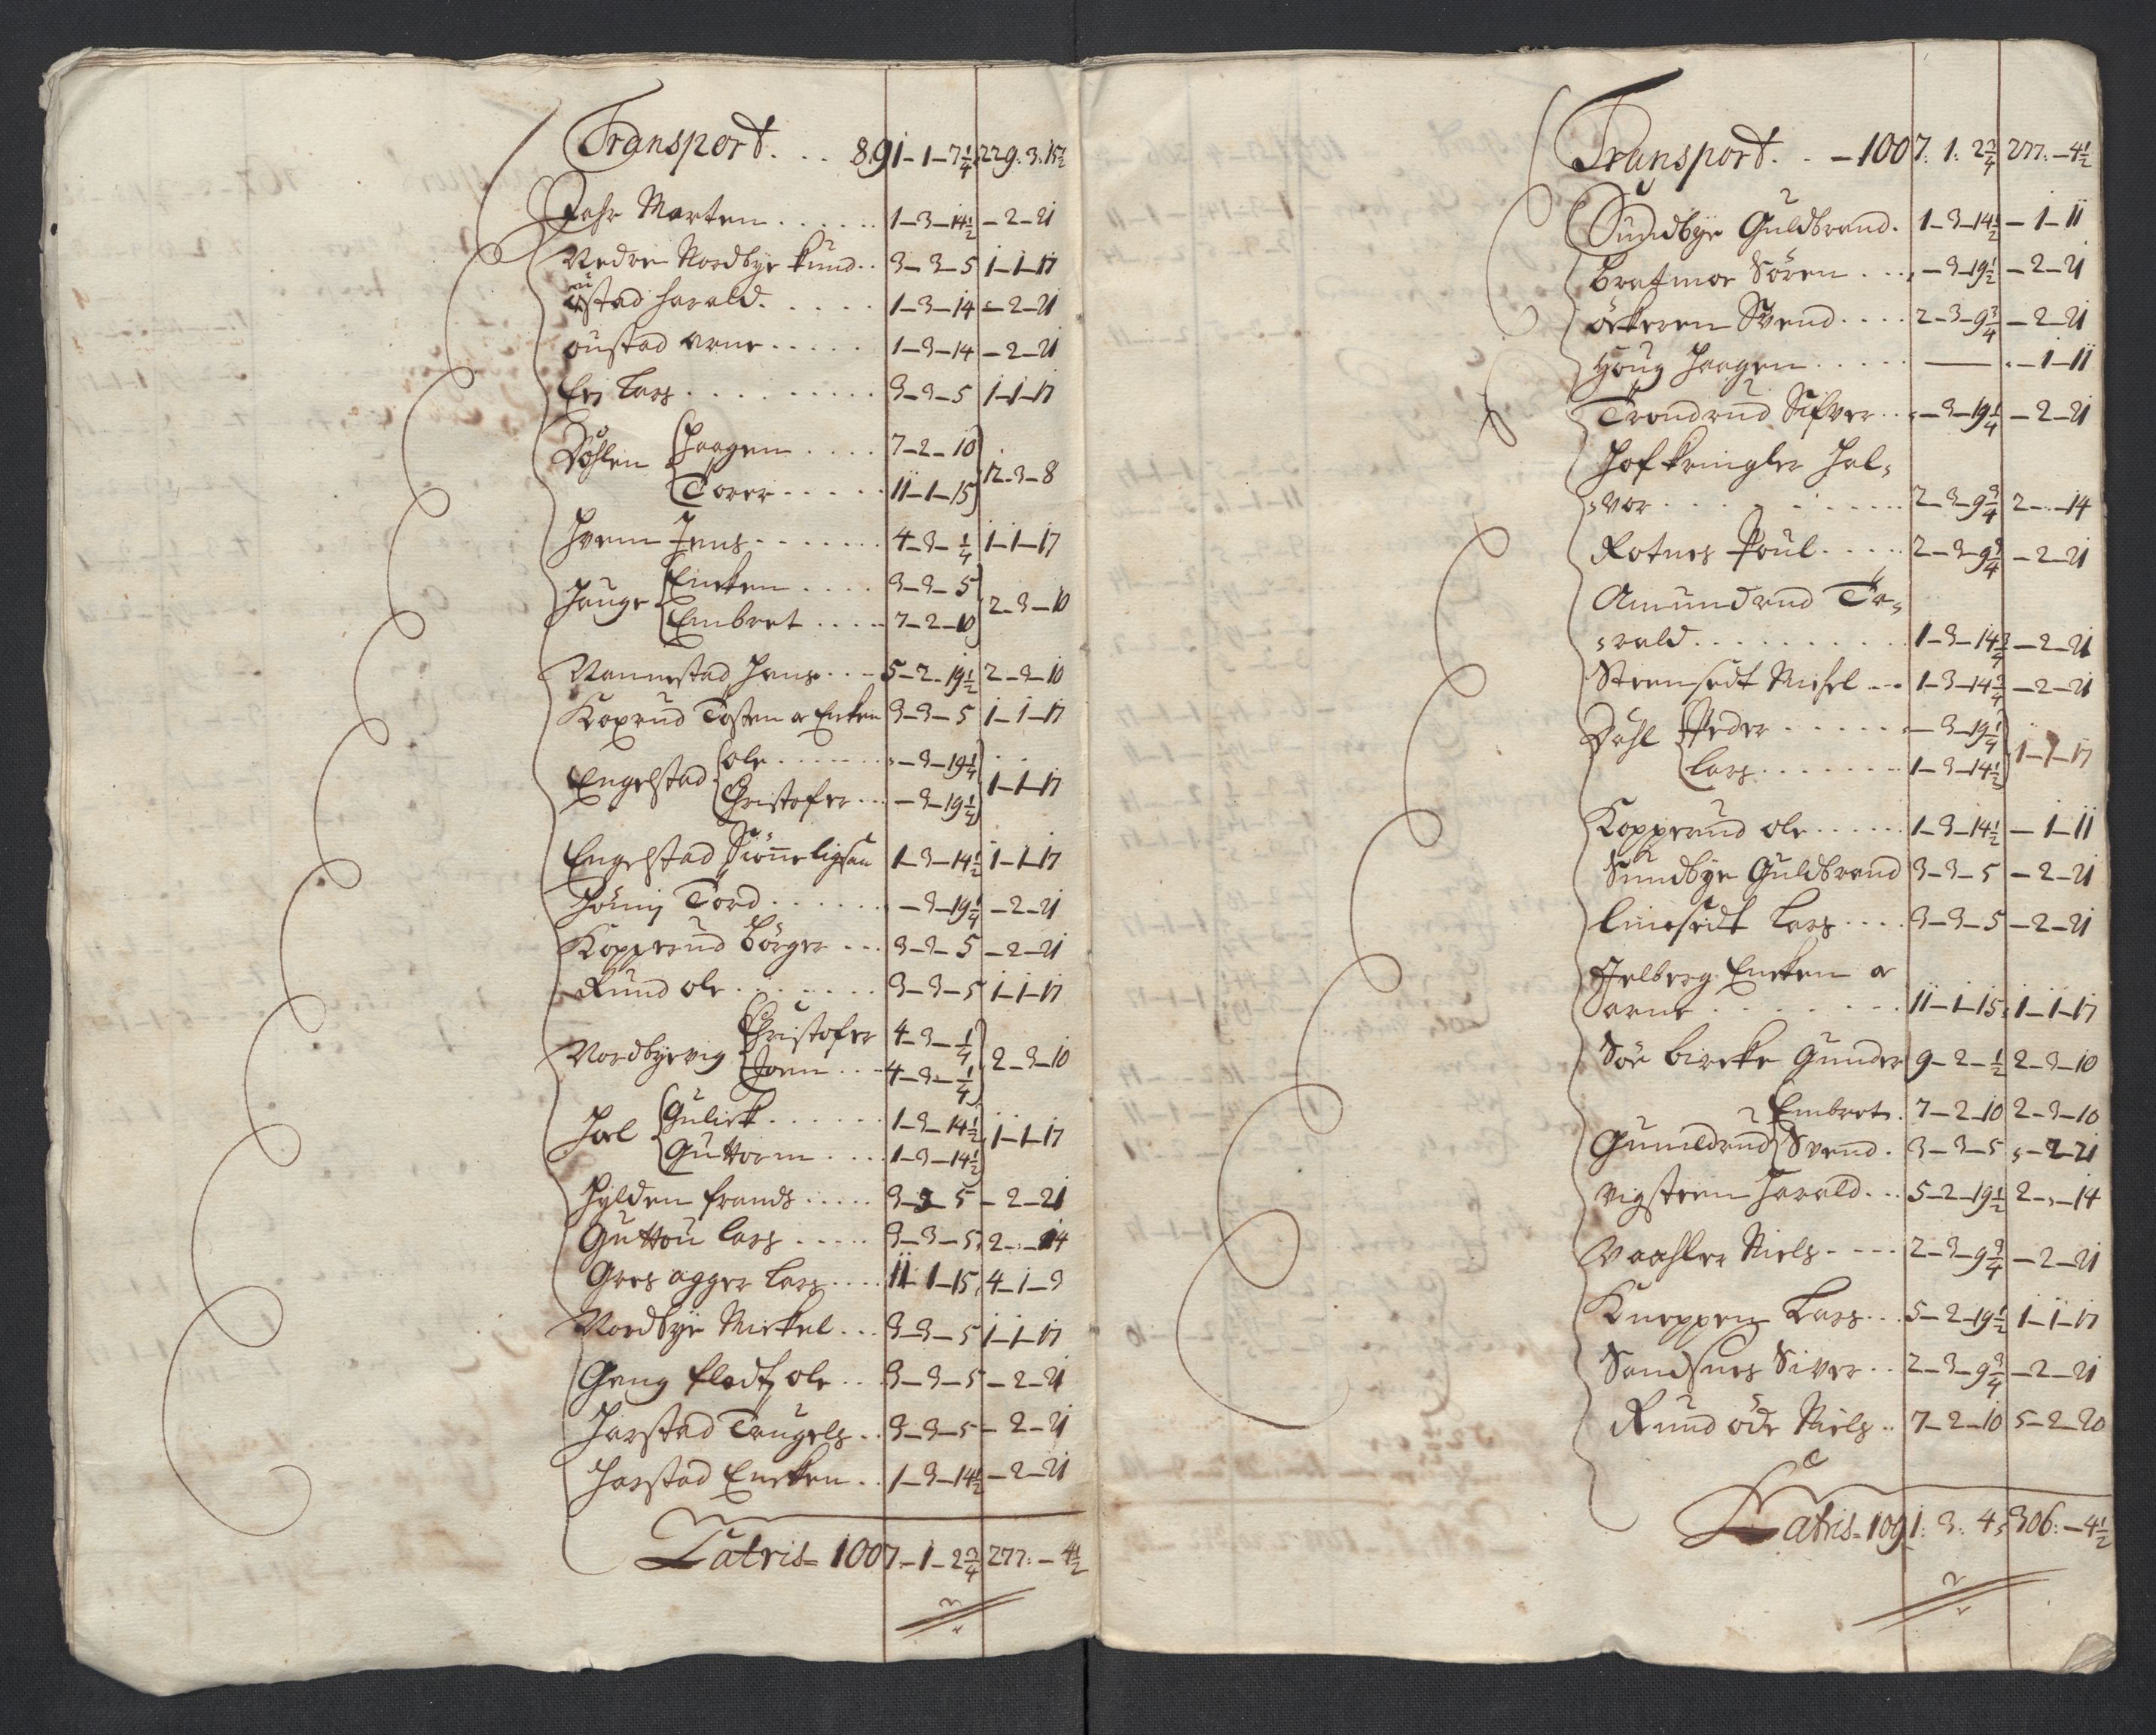 Transport. . . 891-1-7 1/4 229. 3. 15 1/2
Fahr Morten . . . . . . 1-3-14 1/2 -2-21
Nedre Nordbye Knud . . 3-3-5 1-1-17
østad Harald . . . . . 1-3-14 -2-21
oustad Arne . . . . . 1-3-14 -2-21
Eej Lars . . . . . . . . . 3-3-5 1-1-17
Dohlen Haagen . . . . 7-2-10
Torer . . . . . 11-1-15 12-3-8
Hvem Jens . . . . . . . 4-3-1/4 1-1-17
Hauge Encken . . . . 3-3-5
Embret . . . . 7-2-10 2-3-10
Mannestad Hans . . . 5-2-19 1/2 2-3-10
Koxrud Tosten a Enken 3-3-5 1-1-17
Engelstad ole . . . . . . -3-19 1/4
Christofer . . . -3-19 1/4 1-1-17
Engelstad Siønneligsau 1-3-14 1/2 1-1-17
Tord . . . . . . -3-19 1/4 -2-21
Kopperud Börger . . . 3-3-5 -2-21
Rund ole . . . . . . . 3-3-5 1-1-17
Nordbyevig Christofer 4-3-1/4
Joen . . . 4-3-1/4 2-3-10
Hoel Gulick . . . . . . 1-3-14 1/2
Guttorm . . . . 1-3-14 1/2 1-1-17
Hylden frands . . . . . 3-3-5 -2-21
Guttou Lars . . . . . 3-3-5 2-,-14
Gresagger Lars . . . . 11-1-15 4-1-3
Nordbye Mickel . . . 3-3-5 1-1-17
Gang fledt ole . . . 3-3-5 -2-21
Harstad Trugels . . 3-3-5 -2-21
Harstad Encken . . 1-3-14 1/2 -2-21
Latris= 1007.-1-2 3/4 277: -4 1/2
Transport. . . -1007: 1: 2 3/4 277: -4 1/2
Sundbye Guldbrand . 1-3-14 1/2 -1-11
Bratmoe Sören . . . -3-19 1/2 -2-21
öckeren Svend . . . . 2-3-9 3/4 -2-21
Houg Haagen . . . . . — -1-11
Trondrud Sifver . . -3-19 1/4 -2-21
Hof kringler Hal=
=vor . . . . . . . . . 2-3-9 3/4 2-,-14
Rotnes Poul . . . . . 2-3-9 3/4 -2-21
Amundrud Ta=
=rald . . . . . . . . . 1-3-14 3/4 -2-21
Steensedt Michel . . . 1-3-14 3/4 -2-21
Dahl Peder . . . . . . -3-19 1/4
Lars . . . . . . . 1-3-14 1/2 1-1-17
Kopperud ole . . . . . . 1-3-14 1/2 -1-11
Sundbye Guldbrand 3-3-5 -2-21
Linesedt Lars . . . . 3-3-5 -2-21
Fielberg Encken a
arne . . . . . . . 11-1-15 1-1-17
Sör bircke Gunder 9-2-1/2 2-3-10
Gunildrud Embret . 7-2-10 2-3-10
Svend . 3-3-5 -2-21
vigsteen Harald . . . 5-2-19 1/2 2-,-14
Vaahler Niels . . . . 2-3-9 3/4 -2-21
Knappen Lars . . . 5-2-19 1/2 1-1-17
Sandsnes Siver . . 2-3-9 3/4 -2-21
Rund öde Niels . . 7-2-10 5-2-20
Latris= 1091: 3: 4, 306: -4 1/2